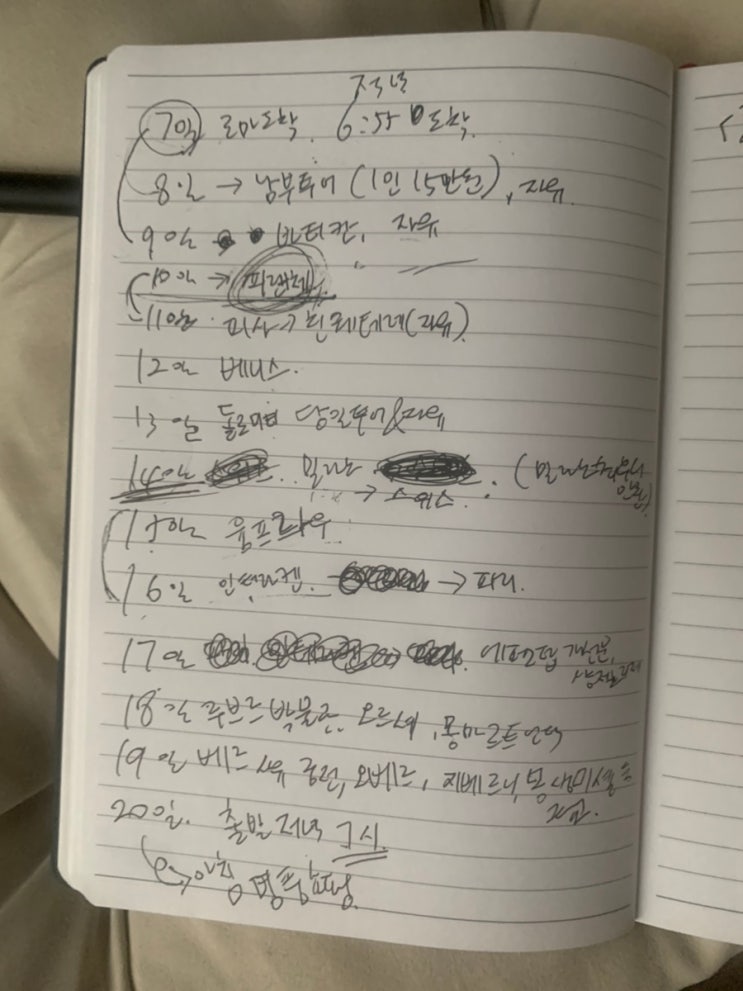 저녁
7일 로마도착. 6:55 도착.
8일 → 남부투어 (1인 15만원), 자유.
9일 바티칸, 자유
10일 → 피렌체
11일. 피사 → 친퀘테레(자유)
12일 베니스.
13일 돌로미티 당일투어&자유
14일 밀라노 → 스위스. (밀라노
15일 융프라우
16일 인터라켄. → 파리.
17일 에펠탑 개선문, 샹젤리제
18일 루브르박물관. 오르셰, 몽마르트언덕
19일 베르사유 궁전, 오베르, 지베르니, 몽생미셸 등
20일. 출발 저녁 9시.
아침